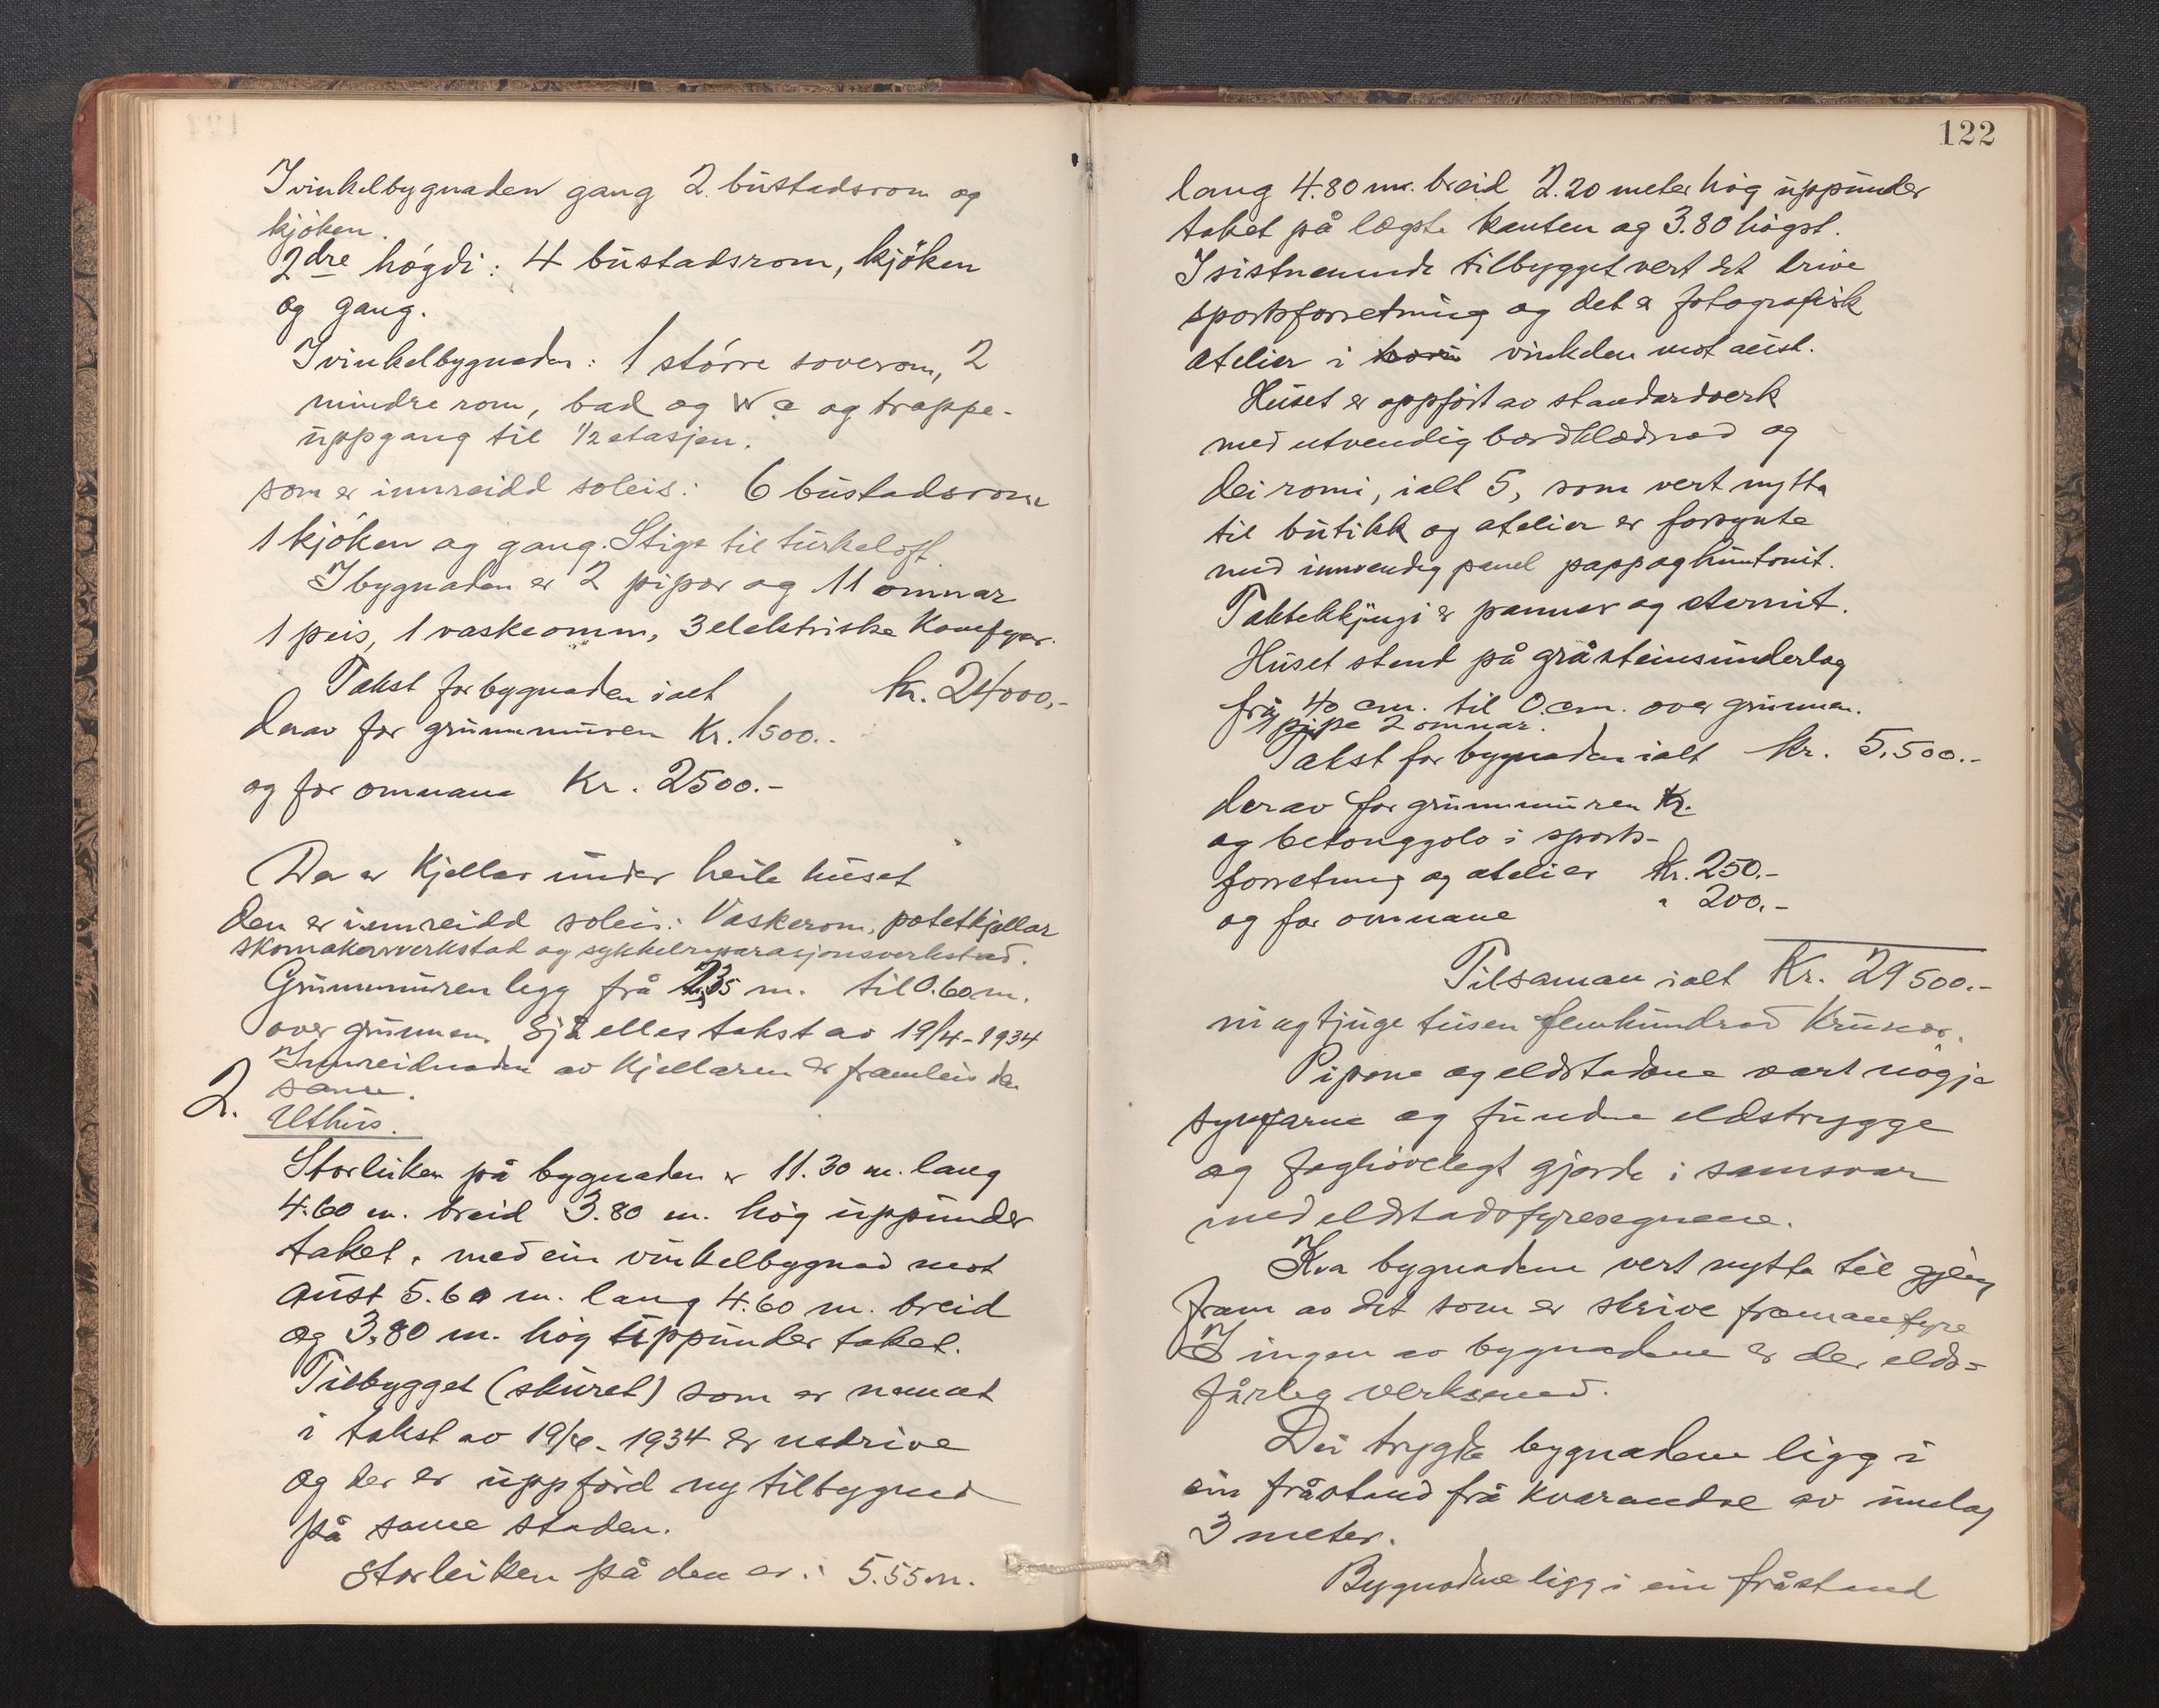 I vinkelbygnaden gang 2 bustadsrom og
kjøken.
2dre høgdi: 4 bustadsrom, kjøken
og gang.
I vinkelbygnaden: 1 større soverom, 2
mindre rom, bad og W.c og trappe-
uppgang til 1/2 etasjen.
som er innreidd soleis: 6 bustadsrom
1 kjøken og gang. Stige til turkeloft.
I bygnaden er 2 pipor og 11 omnar
1 peis, 1 vaskeomn, 3 elektriske Komfyrar.
Takst for bygnaden ialt kr. 24000,-
derav for grunnmuren Kr. 1500.-
og for omnane Kr. 2500.-
Der er Kjellar under heile huset
den er innreidd soleis: Vaskerom, potetkjellar
skomakarverkstad og sykkelreparasjonsverkstad.
Grunnmuren ligg frå 2,35 m. til 0.60 m.
over grunnen. Sjå elles takst av 19/4-1934
Innreidnaden av Kjellaren er framleis den
same.
2. Uthus.
Storleiken på bygnaden er 11.30 m. lang
4.60 m. breid 3.80 m. høg uppunder
taket. med ein vinkelbygnad mot
aust 5.60 m. lang 4.60 m. breid
og 3,80 m. høg uppunder taket.
Tilbygget (skuret) som er nemnt
i takst av 19/4-1934 er nedrive
og der er uppførd ny tilbygnad
på same staden.
Storleiken på den er: 5.55 m.
122
lang 4.80 m. breid 2.20 meter høg uppunder
taket på lægste kanten og 3.80 høgst.
I sistnemnde tilbygget vert det drive
sportsforretning og det er fotografisk
atelier i vinkelen mot aust.
Huset er oppført av standardverk
med utvendig bordklædnad og
dei romi, ialt 5, som vert nytta
til butikk og atelier er forsynte
med innvendig panel papp og huntonit.
Taktekkjingi er pannor og eternit.
Huset stend på gråsteinsunderlag
frå 40 cm. til 0 cm. over grunnen.
1 pipe 2 omnar.
Takst for bygnaden ialt kr. 5.500.-
derav for grunnmuren Kr.
og betonggolv i sports-
forretning og atelier Kr. 250.-
og for omnane " 200.-
Tilsaman ialt Kr. 29500.-
ni og tjuge tusen femhundrad Krunor.
Pipone og eldstadane vart nøgje
synfarne og fundne eldstrygge
og faghøvelegt gjorde i samsvar
med eldstadsfyresegnene.
Kva bygnadene vert nytta til gjeng
fram av det som er skrive framanfyre
I ingen av bygnadene er der elds-
fårleg verksemd.
Dei trygda bygnadene ligg i
ein fråstand frå kvarandre av umlag
3 meter.
Bygnadne ligg i ein fråstand